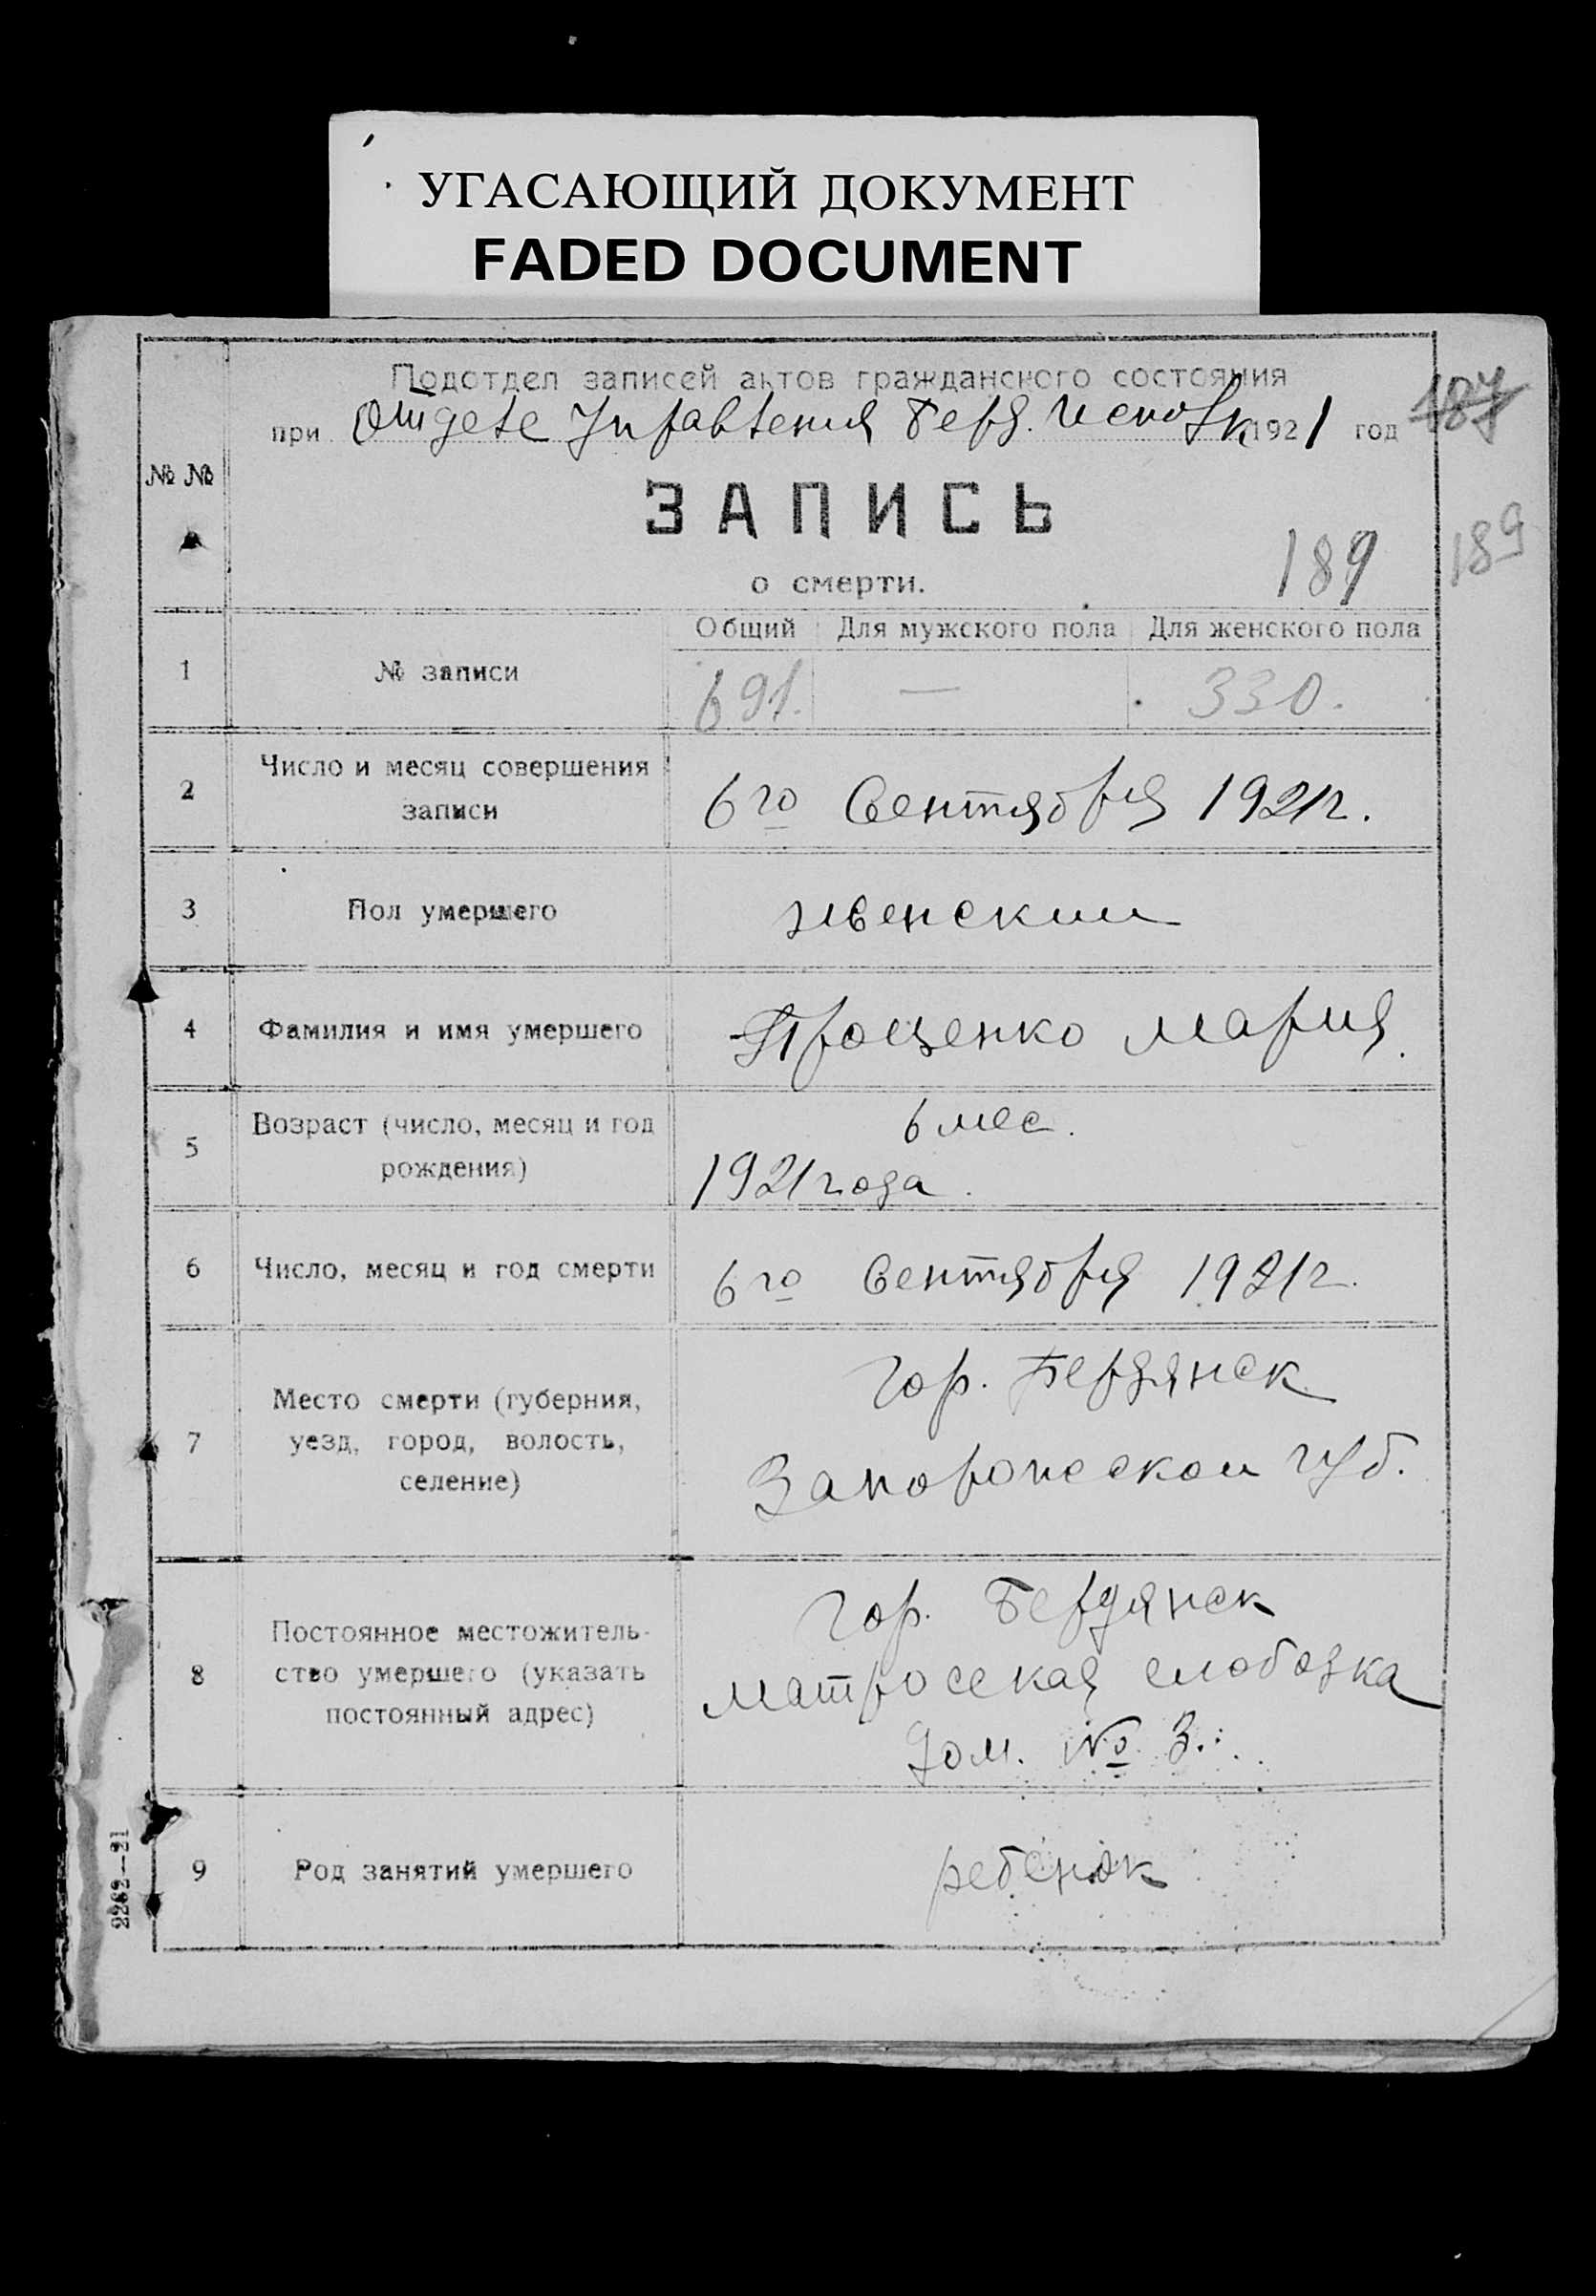 УГАСАЮЩИЙ ДОКУМЕНТ
FADED DOCUMENT
Подотдел записей актов гражданского состояния
при Отделе Управления Берд. Исполк 1921 год
187
№ №
ЗАПИСЬ
о смерти.
189
189
Общий Для мужского пола Для женского пола
1 № записи 691. — 330.
2 Число и месяц совершения
записи
6го Сентября 1921г.
3 Пол умершего женский
4 Фамилия и имя умершего Проценко Мария
5 Возраст (число, месяц и год
рождения)
6 мес.
1921 года.
6 Число, месяц и год смерти 6го Сентября 1921г.
7 Место смерти (губерния,
уезд, город, волость,
селение)
Гор. Бердянск
Запорожской губ.
8 Постоянное местожитель-
ство умершего (указать
постоянный адрес)
Гор. Бердянск
матросская слободка
дом. № 3.
9 Род занятий умершего ребенок
2262—21